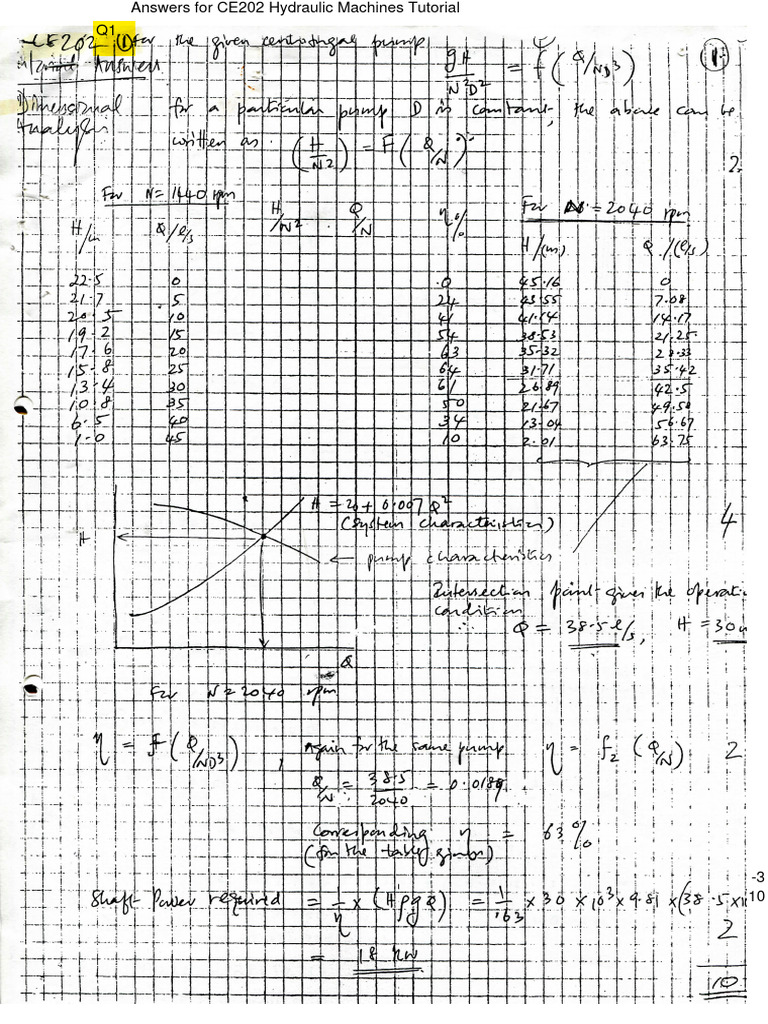 Answers for CE202 Hydraulic Machines Tutorial
CE202 Q1 (1) for the given centrifugal pump gH/N²D² = f(Q/ND³) (1)
Answers
Dimensional for a particular pump D is constant, the above can be
Analysis written as (H/N²) = F(Q/N)
2
For N = 1440 rpm H/N² Q/N η% For N = 2040 rpm
H/m Q/l/s H/(m) Q/(l/s)
22.5 0 0 45.16 0
21.7 5 24 43.55 7.08
20.5 10 41 41.14 14.17
19.2 15 54 38.53 21.25
17.6 20 63 35.32 28.33
15.8 25 64 31.71 35.42
13.4 30 61 26.89 42.5
10.8 35 50 21.67 49.58
6.5 40 34 13.04 56.67
1.0 45 10 2.01 63.75
H = 20 + 0.007 Q²
(System characteristics)
4
H
← pump characteristics
Intersection point gives the operati
condition
∴ Q = 38.5 l/s, H = 30
Q
For N = 2040 rpm
η = F(Q/ND³), Again for the same pump η = f₂(Q/N) 2
Q/N = 38.5/2040 = 0.0189
Corresponding η = 63%
(from the table given)
Shaft Power required = 1/η × (HρgQ) = 1/.63 × 30 × 10³ × 9.81 × (38.5 × 10 -3
2
= 18 kW
10